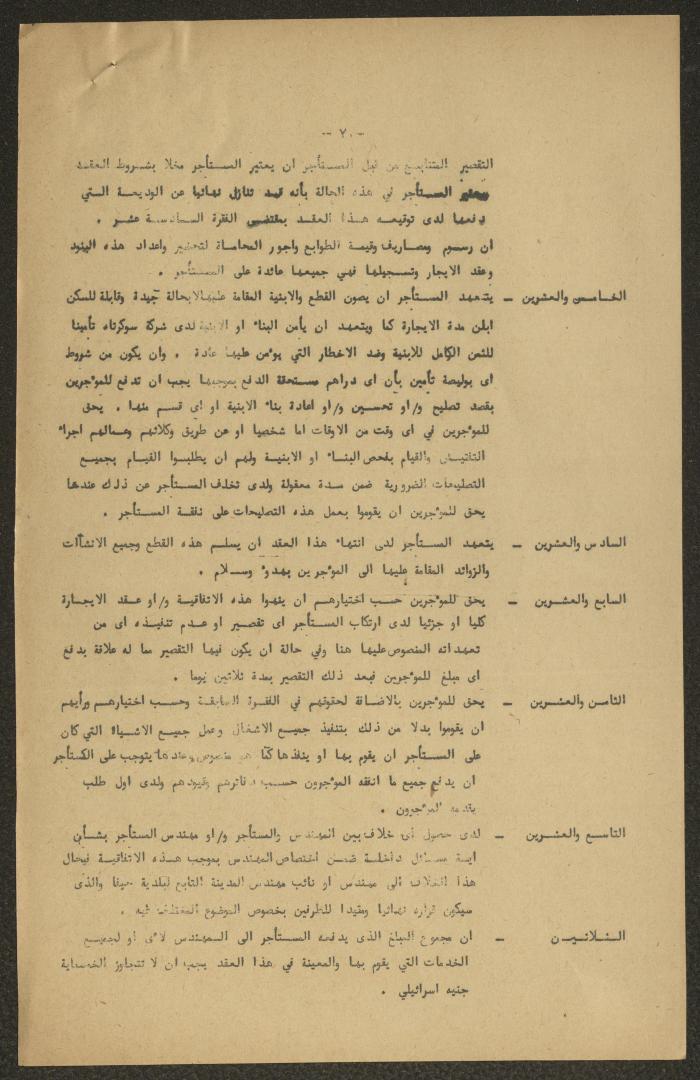 -- ٧٠ --
التقصير المتتابع من قبل المستأجر ان يعتبر المستأجر مخلا بشروط العقد
ويعتبر المستأجر في هذه الحالة بأنه قد تنازل نهائيا عن الوديعة التي
دفعها لدى توقيعه هذا العقد بمقتضى الفقرة السادسة عشر .
ان رسوم ومصاريف وقيمة الطوابع واجور المحاماة لتحضير واعداد هذه البنود
وعقد الايجار وتسجيلها فهي جميعها عائدة على المستأجر .
الخامس والعشرين – يتعهد المستأجر ان يصون القطع والابنية المقامة عليها لابحالة جيدة وقابلة للسكن
ابان مدة الايجارة كما ويتعهد ان يأمن البناء او الابنية لدى شركة سوكرتاه تأمينا
للثمن الكامل للابنية وضد الاخطار التي يومن عليها عادة . وان يكون من شروط
اى بوليصة تأمين بأن اى دراهم مستحقة الدفع بموجبها يجب ان تدفع للموجرين
بقصد تصليح و/او تحسين و/او اعادة بناء الابنية او اى قسم منها . يحق
للموجرين في اى وقت من الاوقات اما شخصيا او عن طريق وكلائهم وعمالهم اجراء
التفتيش والقيام بفحص البناء او الابنية ولهم ان يطلبوا القيام بجميع
التصليحات الضرورية ضمن مدة معقولة ولدى تخلف المستأجر عن ذلك عندها
يحق للموجرين ان يقوموا بعمل هذه التصليحات على نفقة المستأجر .
السادس والعشرين – يتعهد المستأجر لدى انتهاء هذا العقد ان يسلم هذه القطع وجميع الانشآات
والزوائد المقامة عليها الى الموجرين بهدوء وسلام .
السابع والعشرين – يحق للموجرين حسب اختيارهم ان ينهوا هذه الاتفاقية و/او عقد الايجارة
كليا او جزئيا لدى ارتكاب المستأجر اى تقصير او عدم تنفيذه اى من
تعهداته المنصوص عليها هنا وفي حالة ان يكون فيها التقصير مما له علاقة بدفع
اى مبلغ للموجرين فبعد ذلك التقصير بمدة ثلاثين يوما .
الثامن والعشرين – يحق للموجرين بالاضافة لحقوقهم في الفقرة السابقة وحسب اختيارهم ورأيهم
ان يقوموا بدلا من ذلك بتنفيذ جميع الاشغال وعمل جميع الاشياء التي كان
على المستأجر ان يقوم بها او ينفذها كما هو منصوص وعندها يتوجب على المستأجر
ان يدفع جميع ما انفقه الموجرون حسب دفاترهم وقيودهم ولدى اول طلب
يقدمه الموجرون .
التاسع والعشرين – لدى حصول اى خلاف بين المهندس والمستأجر و/او مهندس المستأجر بشأن
اية مسائل داخلة ضمن اختصاص المهندس بموجب هذه الاتفاقية فيحال
هذا الخلاف الى مهندس او نائب مهندس المدينة التابع لبلدية حيفا والذى
سيكون قراره نهائيا ومقيدا للطرفين بخصوص الموضوع المختلف فيه .
الثلاثين – ان مجموع المبلغ الذى يدفعه المستأجر الى المهندس لاى او لجميع
الخدمات التي يقوم بها والمعينة في هذا العقد يجب ان لا تتجاوز الخمسماية
جنيه اسرائيلي .